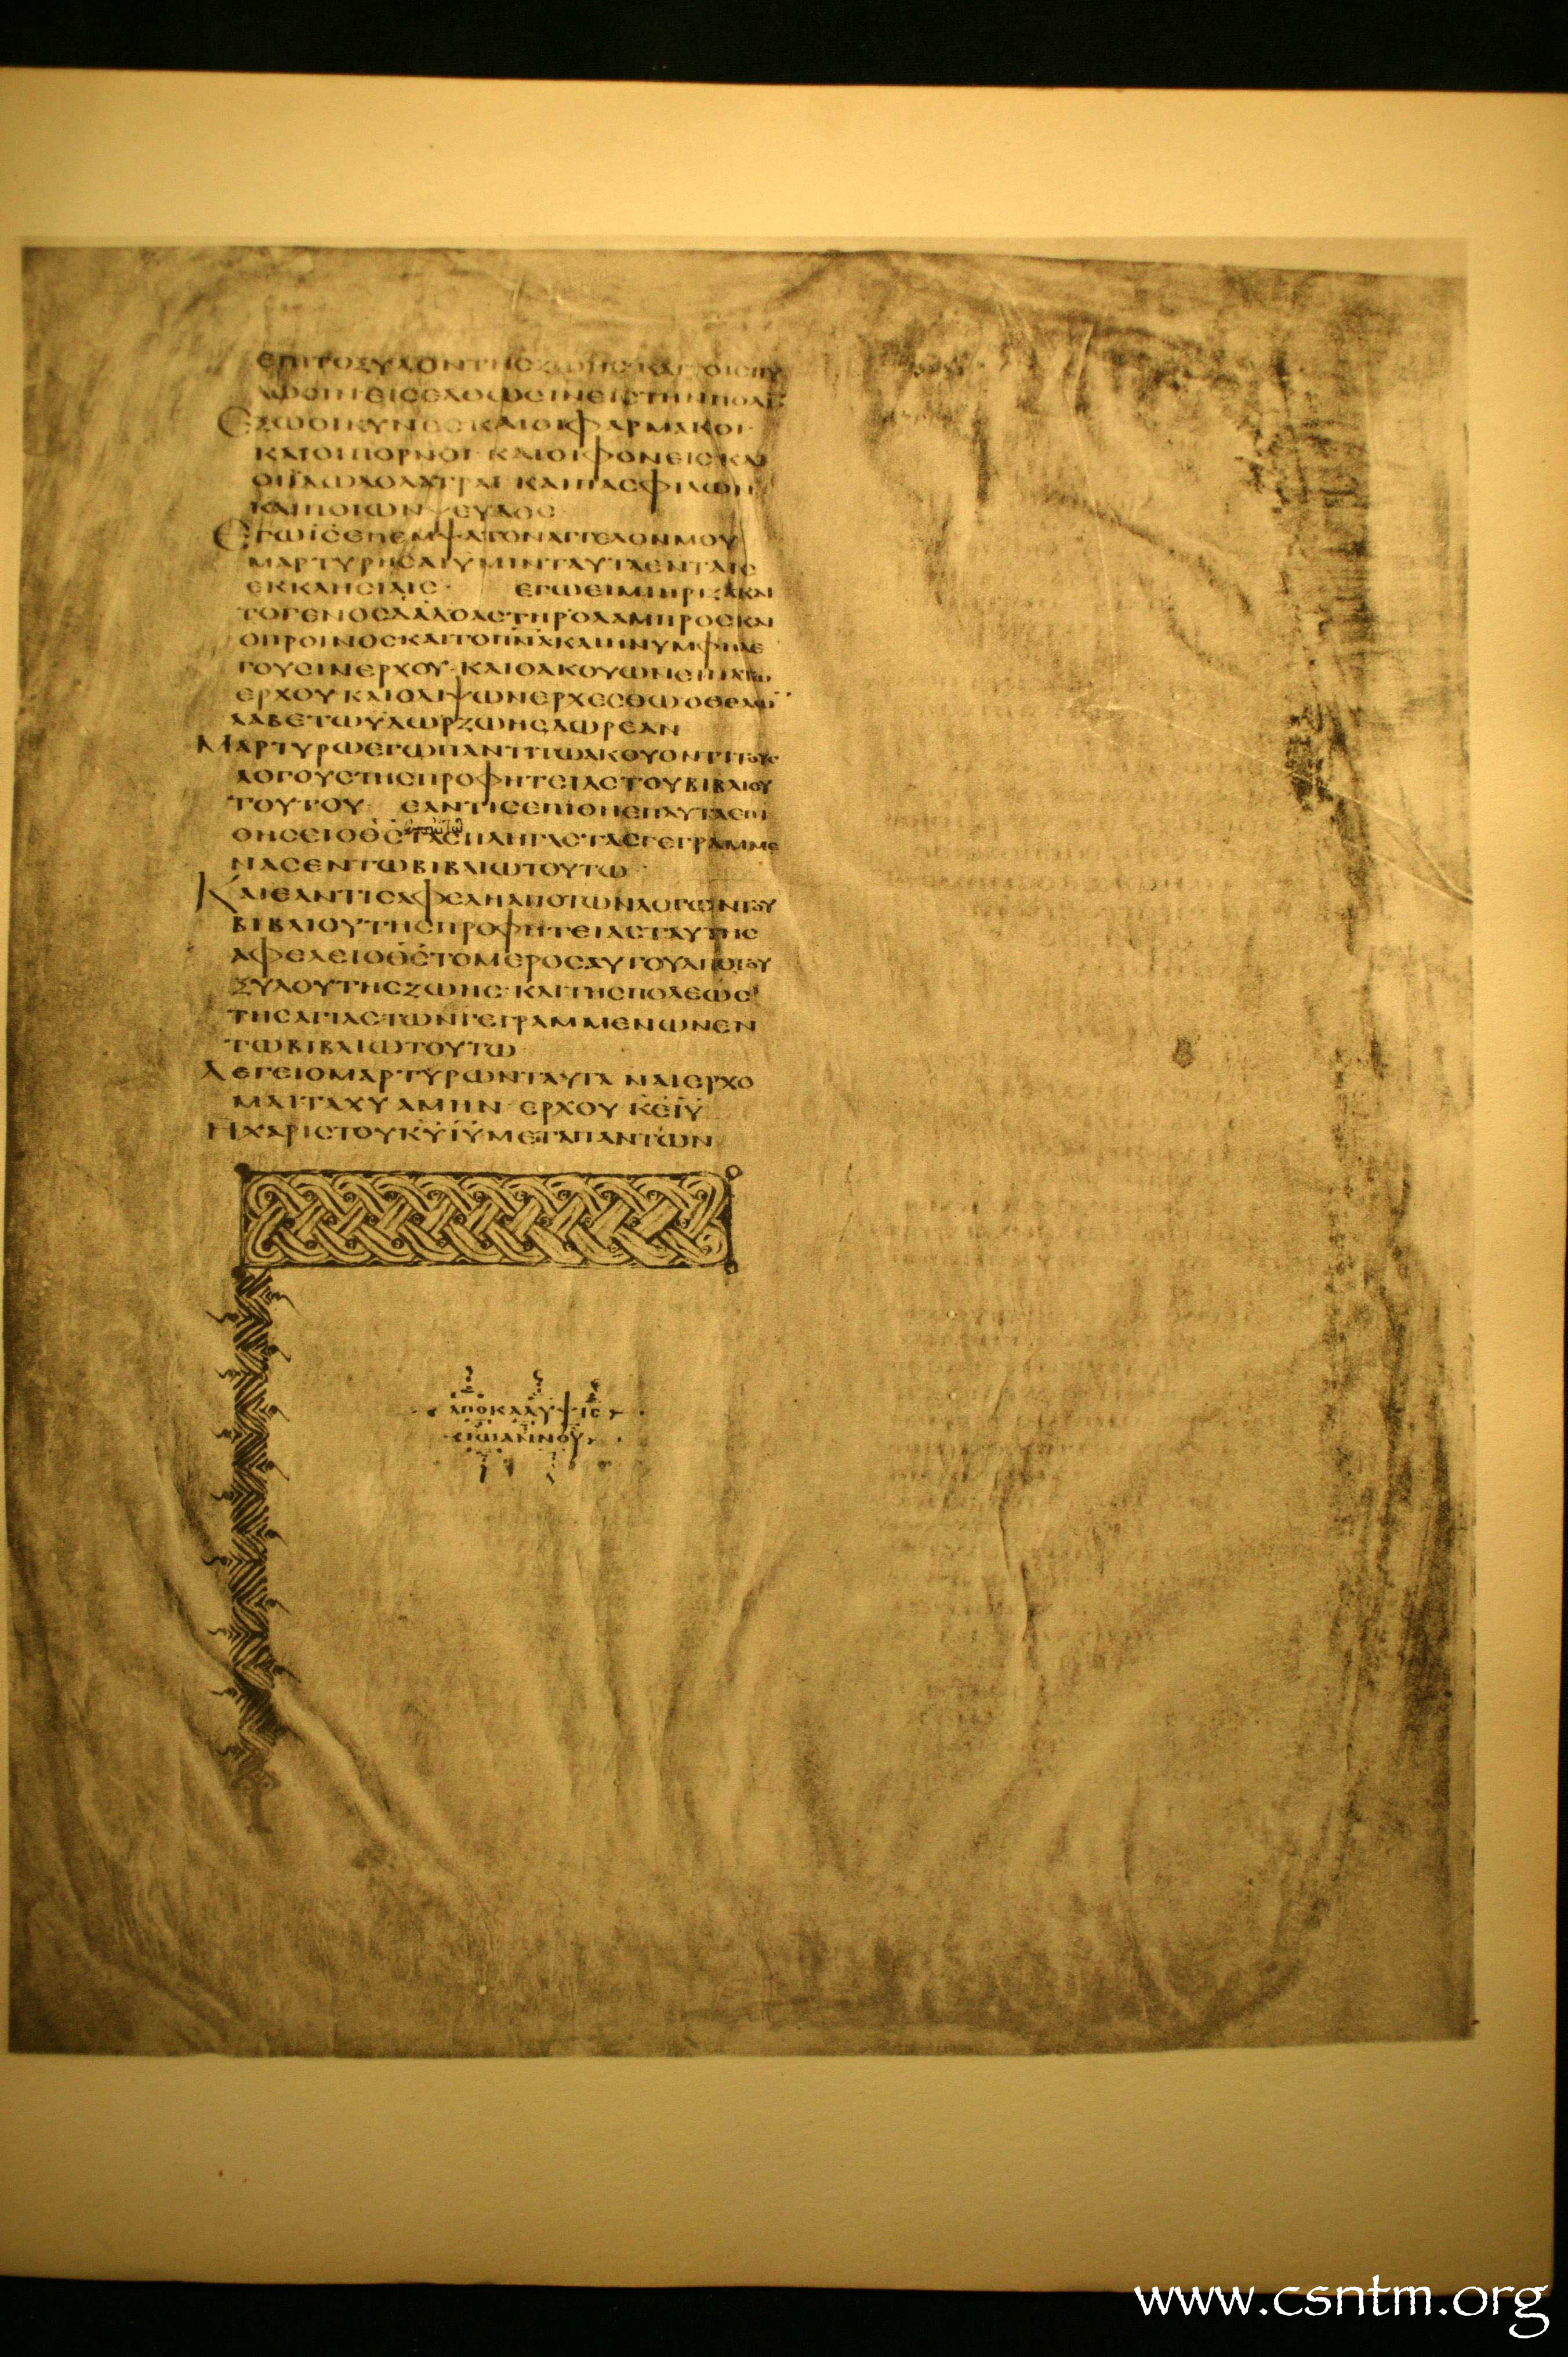 ΕΠΙΤΟΞΥΛΟΝΤΗCΖΩΗCΚΑΙ ΤΟΙCΠΥ
ΛΩCΙΝΕΙCΕΛΘΩCΙΝΕΙCΤΗΝΠΟΛΙ̅
ΕΞΩΟΙΚΥΝΕC ΚΑΙΟΙΦΑΡΜΑΚΟΙ
ΚΑΙΟΙΠΟΡΝΟΙ ΚΑΙΟΙΦΟΝΕΙC ΚΑΙ
ΟΙΙΔΩΛΟΛΑΤΡΑΙ ΚΑΙΠΑCΦΙΛΩΝ
ΚΑΙΠΟΙΩΝ ΨΕΥΔΟC
ΕΓΩΙ̅C̅ΕΠΕΜΨΑΤΟΝΑΓΓΕΛΟΝΜΟΥ
ΜΑΡΤΥΡΗCΑΙΥΜΙΝΤΑΥΤΑΕΝΤΑΙC
ΕΚΚΛΗCΙΑΙC· ΕΓΩΕΙΜΙΗΡΙΖΑΚΑΙ
ΤΟΓΕΝΟCΔΑ̅Δ̅ΟΑCΤΗΡΟΛΑΜΠΡΟCΚΑΙ
ΟΠΡΟΙΝΟCΚΑΙΤΟΠ̅Ν̅Α̅ΚΑΙΗΝΥΜΦΗΛΕ
ΓΟΥCΙΝΕΡΧΟΥ·ΚΑΙΟΑΚΟΥΩΝΕΙΠΑΤΩ
ΕΡΧΟΥΚΑΙΟΔΙΨΩΝΕΡΧΕCΘΩΟΘΕΛΩ̅
ΛΑΒΕΤΩΥΔΩΡΖΩΗCΔΩΡΕΑΝ
ΜΑΡΤΥΡΩΕΓΩΠΑΝΤΙΤΩΑΚΟΥΟΝΤΙΤΟΥC
ΛΟΓΟΥCΤΗCΠΡΟΦΗΤΕΙΑCΤΟΥΒΙΒΛΙΟΥ
ΤΟΥΤΟΥ ΕΑΝΤΙCΕΠΙΘΗΕΠΑΥΤΑΕΠΙ
ΘΗCΕΙΟΘ̅C̅ΤΑCΠΛΗΓΑCΤΑCΓΕΓΡΑΜΜΕ
ΝΑCΕΝΤΩΒΙΒΛΙΩΤΟΥΤΩ
ΚΑΙΕΑΝΤΙCΑΦΕΛΗΑΠΟΤΩΝΛΟΓΩΝΤΟΥ
ΒΙΒΛΙΟΥΤΗCΠΡΟΦΗΤΕΙΑCΤΑΥΤΗC
ΑΦΕΛΕΙΟΘ̅C̅ΤΟΜΕΡΟCΑΥΤΟΥΑΠΟΤΟΥ
ΞΥΛΟΥΤΗCΖΩΗC·ΚΑΙΤΗCΠΟΛΕΩC
ΤΗCΑΓΙΑCΤΩΝΓΕΓΡΑΜΜΕΝΩΝΕΝ
ΤΩΒΙΒΛΙΩΤΟΥΤΩ
ΛΕΓΕΙΟΜΑΡΤΥΡΩΝΤΑΥΤΑ ΝΑΙΕΡΧΟ
ΜΑΙΤΑΧΥ ΑΜΗΝ·ΕΡΧΟΥ Κ̅Ε̅Ι̅Υ̅
ΗΧΑΡΙCΤΟΥΚ̅Υ̅Ι̅Υ̅ΜΕΤΑΠΑΝΤΩΝ
ΑΠΟΚΑΛΥΨΙC
ΙΩΑΝΝΟΥ
www.csntm.org